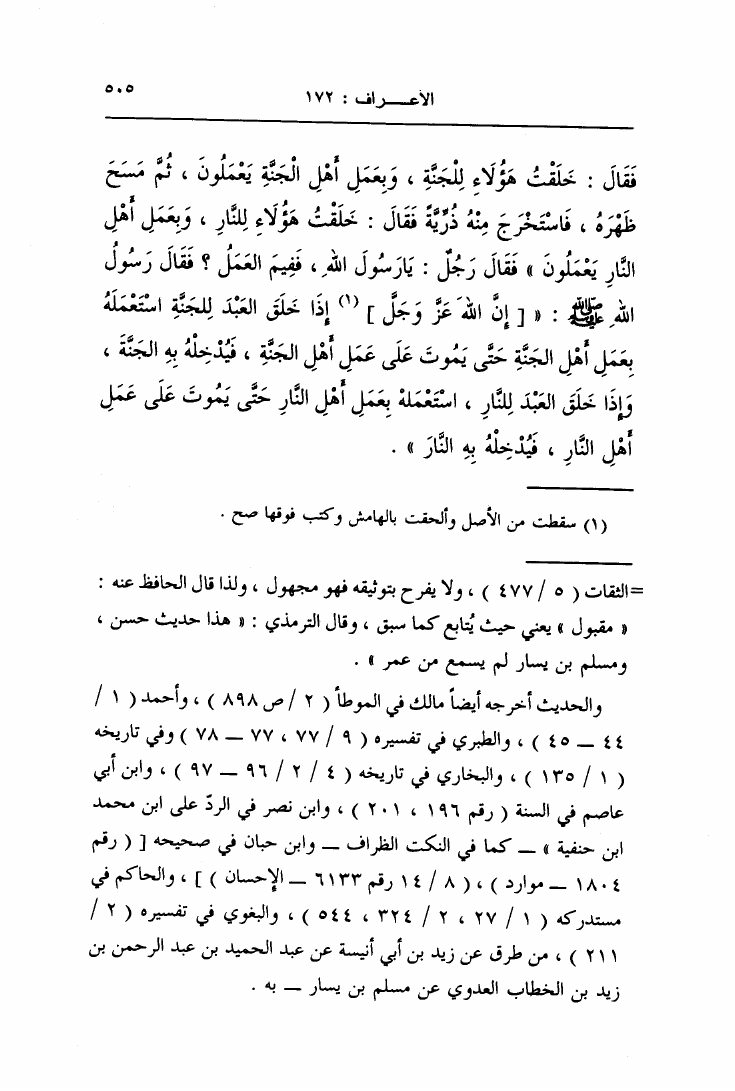 الأعـــراف : ١٧٢
٥٠٥
فَقَالَ : خَلَقْتُ هَؤُلَاءِ لِلْجَنَّةِ ، وَبِعَمَلِ أَهْلِ الْجَنَّةِ يَعْمَلُونَ ، ثُمَّ مَسَحَ
ظَهْرَهُ ، فَاسْتَخْرَجَ مِنْهُ ذُرِّيَّةً فَقَالَ : خَلَقْتُ هَؤُلَاءِ لِلنَّارِ ، وَبِعَمَلِ أَهْلِ
النَّارِ يَعْمَلُونَ » فَقَالَ رَجُلٌ : يَارَسُولَ اللهِ ، فَفِيمَ العَمَلُ ؟ فَقَالَ رَسُولُ
اللهِ ﷺ : « [ إِنَّ اللهَ عَزَّ وَجَلَّ ] (١) إِذَا خَلَقَ العَبْدَ لِلجَنَّةِ اسْتَعْمَلَهُ
بِعَمَلِ أَهْلِ الجَنَّةِ حَتَّى يَمُوتَ عَلَى عَمَلِ أَهْلِ الجَنَّةِ ، فَيُدْخِلْهُ بِهِ الجَنَّةَ ،
وَإِذَا خَلَقَ العَبْدَ لِلنَّارِ ، اسْتَعْمَلَهُ بِعَمَلِ أَهْلِ النَّارِ حَتَّى يَمُوتَ عَلَى عَمَلِ
أَهْلِ النَّارِ ، فَيُدْخِلْهُ بِهِ النَّارَ » .
(١) سقطت من الأصل وألحقت بالهامش وكتب فوقها صح .
=الثقات ( ٥ / ٤٧٧ ) ، ولا يفرح بتوثيقه فهو مجهول ، ولذا قال الحافظ عنه :
« مقبول » يعني حيث يُتابع كما سبق ، وقال الترمذي : « هذا حديث حسن ،
ومسلم بن يسار لم يسمع من عمر » .
والحديث أخرجه أيضاً مالك في الموطأ ( ٢ / ص ٨٩٨ ) ، وأحمد ( ١ /
٤٤ ــ ٤٥ ) ، والطبري في تفسيره ( ٩ / ٧٧ ، ٧٧ ــ ٧٨ ) وفي تاريخه
( ١ / ١٣٥ ) ، والبخاري في تاريخه ( ٤ / ٢ / ٩٦ ــ ٩٧ ) ، وابن أبي
عاصم في السنة ( رقم ١٩٦ ، ٢٠١ ) ، وابن نصر في الردّ على ابن محمد
ابن حنفية » ــ كما في النكت الظراف ــ وابن حبان في صحيحه [ ( رقم
١٨٠٤ ــ موارد ) ، ( ٨ / ١٤ رقم ٦١٣٣ ــ الإحسان ) ] ، والحاكم في
مستدركه ( ١ / ٢٧ ، ٢ / ٣٢٤ ، ٥٤٤ ) ، والبغوي في تفسيره ( ٢ /
٢١١ ) ، من طرق عن زيد بن أبي أنيسة عن عبد الحميد بن عبد الرحمن بن
زيد بن الخطاب العدوي عن مسلم بن يسار ــ به .